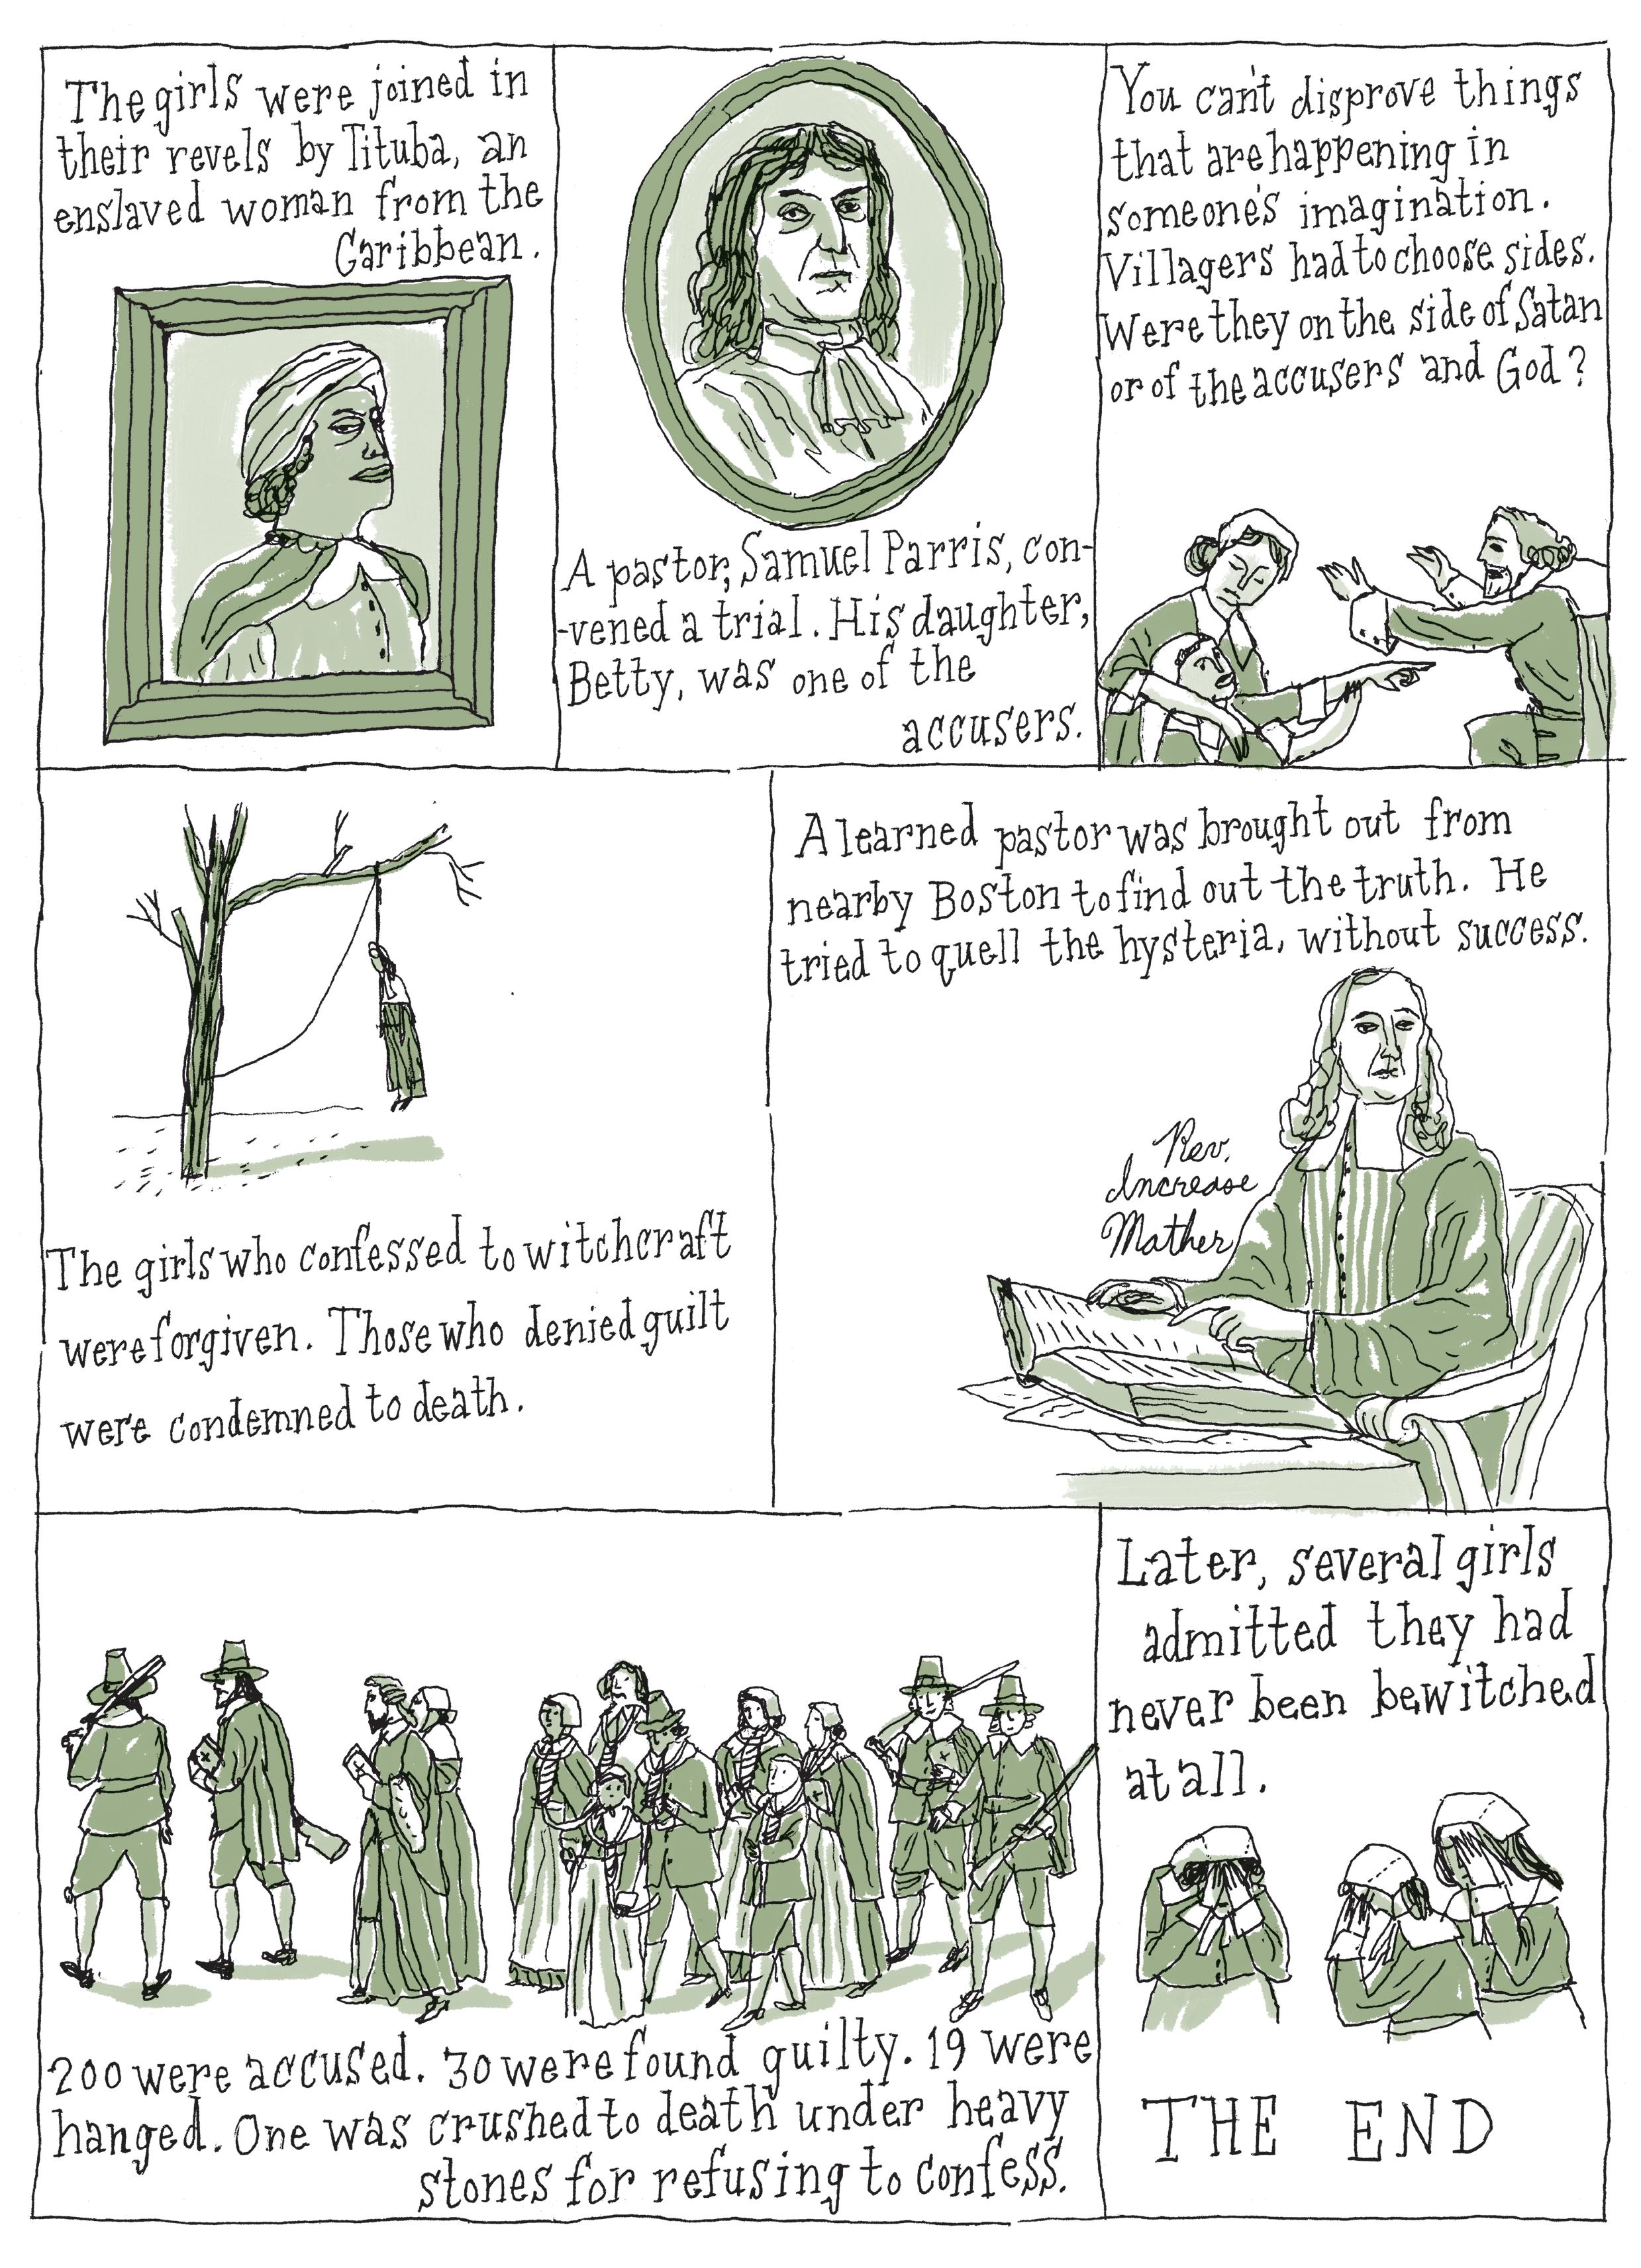 The girls were joined in
their revels by Tituba, an
enslaved woman from the
Caribbean.
A pastor, Samuel Parris, con-
-vened a trial. His daughter,
Betty, was one of the
accusers.
You can't disprove things
that are happening in
someone's imagination.
Villagers had to choose sides.
Were they on the side of Satan
or of the accusers and God?
The girls who confessed to witchcraft
were forgiven. Those who denied guilt
were condemned to death.
A learned pastor was brought out from
nearby Boston to find out the truth. He
tried to quell the hysteria, without success.
Rev.
Increase
Mather
200 were accused. 30 were found guilty. 19 were
hanged. One was crushed to death under heavy
stones for refusing to confess.
Later, several girls
admitted they had
never been bewitched
at all.
THE END